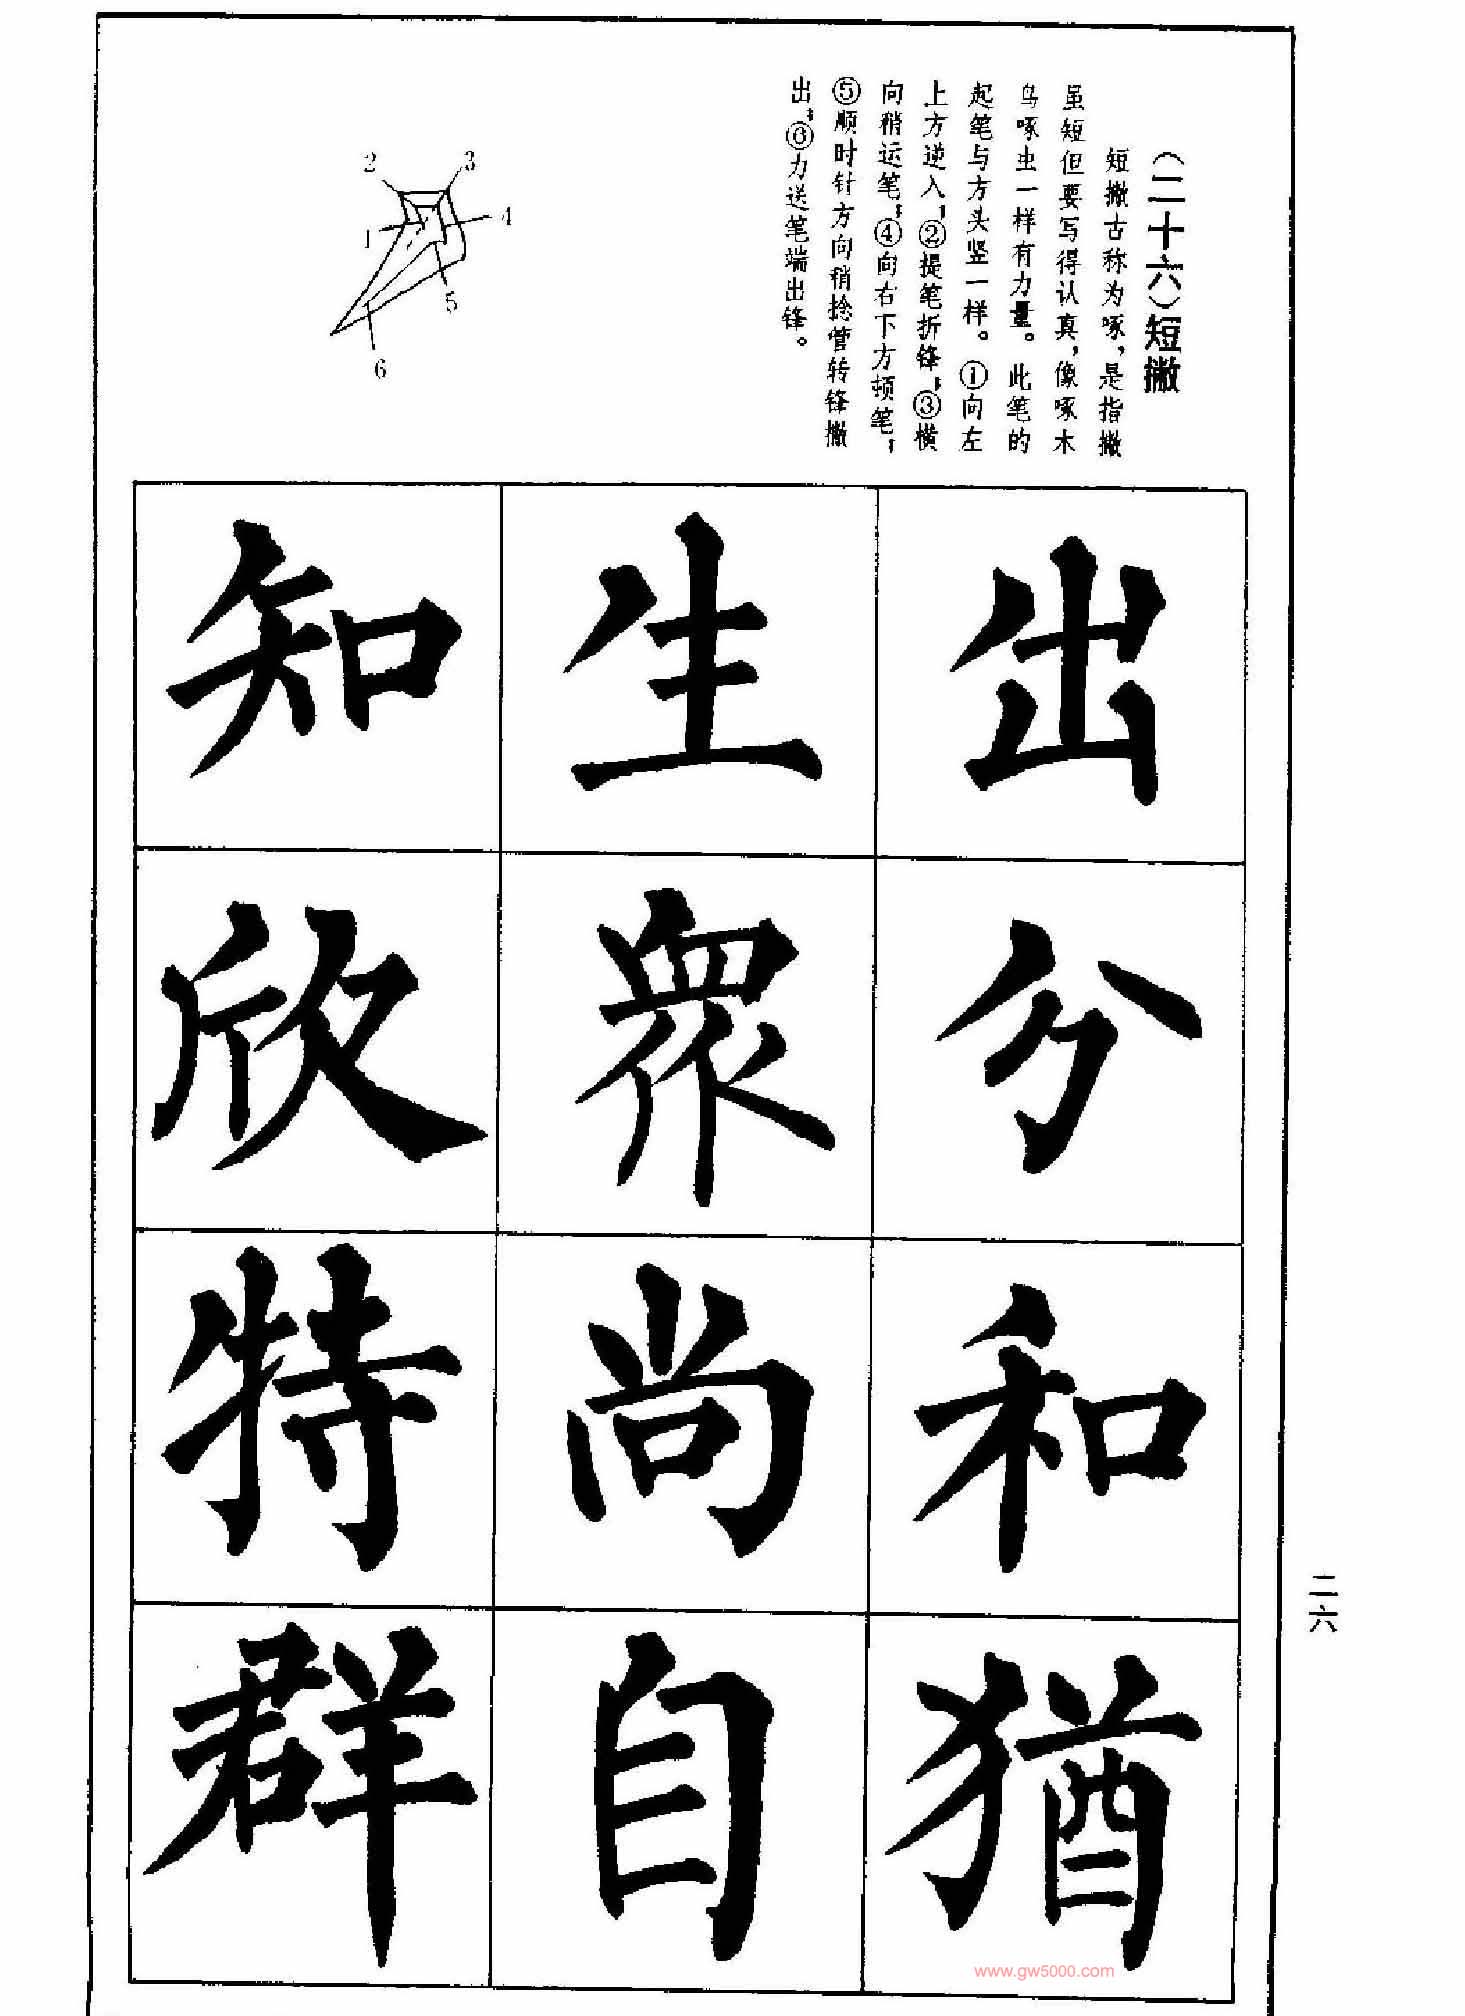 （二十六）短撇
短撇古称为啄，是指撇
虽短但要写得认真，像啄木
鸟啄虫一样有力量。此笔的
起笔与方头竖一样。①向左
上方逆入；②提笔折锋；③横
向稍运笔；④向右下方顿笔；
⑤顺时针方向稍捻管转锋撇
出；⑥力送笔端出锋。
2 3
1 4
5
6
出 分 和 犹
生 眾 尚 自
知 欣 特 群
二六
www.gw5000.com